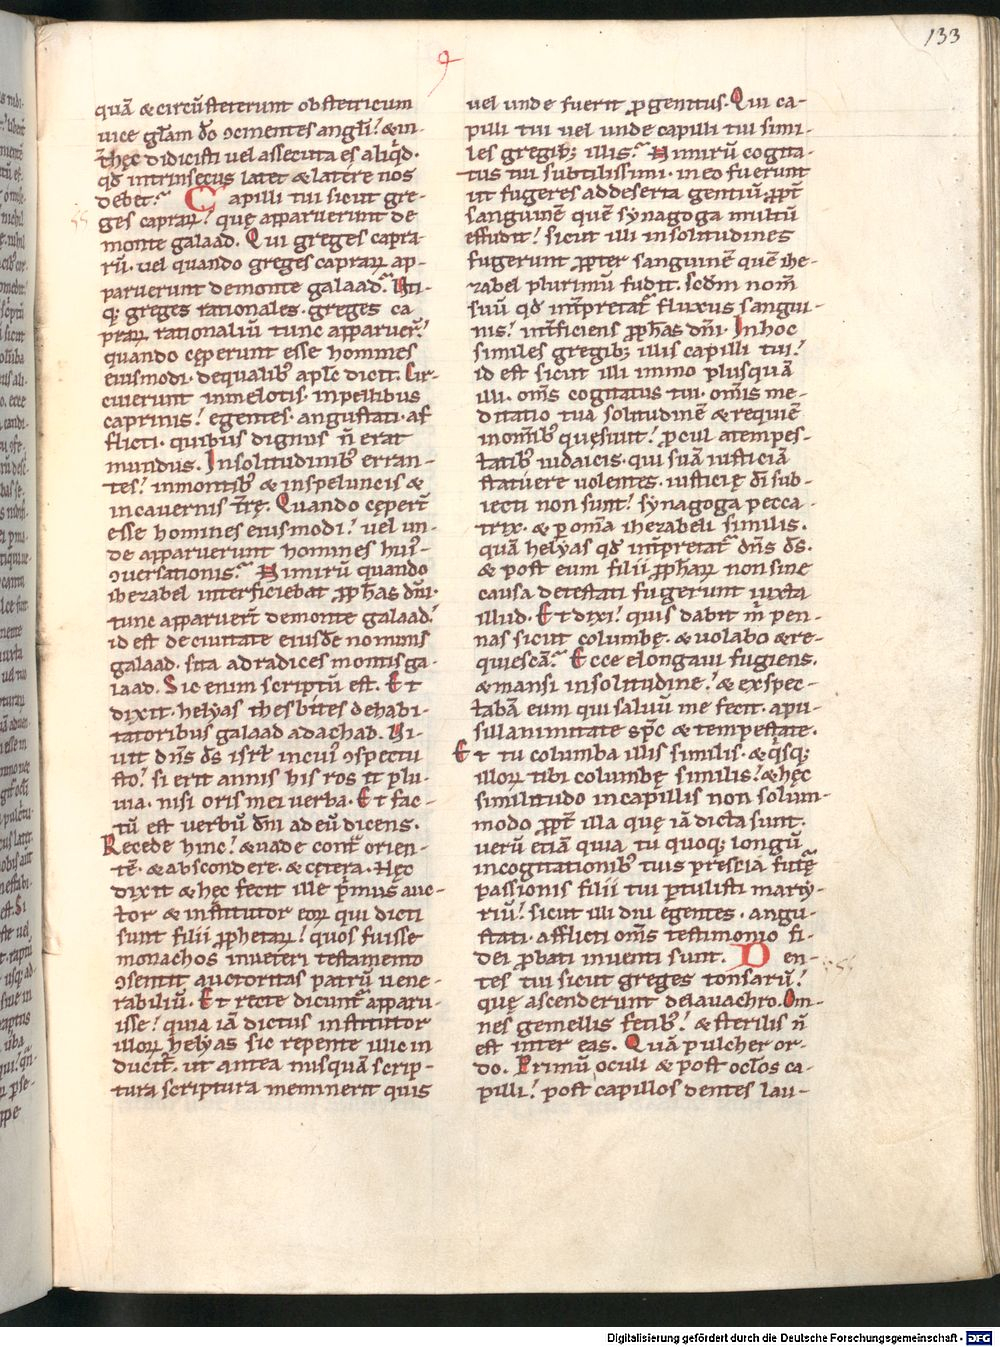 133
quā & circūsteterunt obstetricum
uice gl̄am d̄o ꝯcinentes angl̄i? & in-
t̄ hęc didicisti uel assecuta es aliq̇d.
qđ intrinsecus latet & latere nos
debet? Capilli tui sicut gre-
ges capraꝝ? quę apparuerunt de
monte galaad. Qui greges capra-
rū. uel quando greges capraꝝ ap-
paruerunt de monte galaad? Uti-
qꝫ greges rationales. greges ca
praꝝ rationaliū tunc apparuer̄?
quando cęperunt esse homines
eiusmodi. de qualibꝰ apl̄c dicit. Cir-
cuierunt in melotis. in pellibus
caprinis? egentes. angustati. af
flicti. quibus dignus ñ erat
mundus. In solitudinibꝰ erran-
tes? in montibꝰ & in speluncis &
in cauernis t̄rę. Quando cęper̄t
esse homines eiusmodi? uel un-
de apparuerunt homines huiꝰ-
ꝯuersationis? Nimirū quando
ihezabel interficiebat ꝓphas dn̄i.
tunc apparuer̄t de monte galaad?
id est de ciuitate eiusdē nominis
galaad. sita ad radices montis ga-
laad. Sic enim scriptū est. Et
dixit. helyas thesbites de habi-
tatoribus galaad ad achab. Ui-
uit dn̄s d̄s isrl̄ in cuiꝰ ꝯspectu
sto? si erit annis his ros & plu-
uia. nisi oris mei uerba. Et fac-
tū est uerbū dn̄i ad eū dicens.
Recede hinc? & uade contͣ orien-
tē. & abscondere. & cętera. Hęc
dixit & hęc fecit ille p̄mus auc-
tor & institutor eoꝝ qui dicti
sunt filii ꝓphetaꝝ? quos fuisse
monachos in ueteri testamento
ꝯsentit auctoritas patrū uene-
rabiliū. Et recte dicunt᷑ apparu-
isse? quia iā dictus institutor
illoꝝ helyas sic repente illic in
ducit᷑. ut antea nusquā scrip-
tura scriptura meminerit quis
uel unde fuerit ꝓgenitus. Qui ca-
pilli tui uel unde capilli tui simi-
les gregibꝫ illis? Nimirū cogita-
tus tui subtilissimi. in eo fuerunt
ut fugeres ad deserta gentiū ꝓpt̄
sanguinē quē synagoga multū
effudit? sicut illi in solitudines
fugerunt ꝓpter sanguinē quē ihe-
zabel plurimū fudit. scd̄m nom̄
suū qđ int̄pretat᷑ fluxus sangui-
nis? int̄ficiens ꝓphas dn̄i. In hoc
similes gregibꝫ illis capilli tui?
id est sicut illi immo plusquā
illi. om̄s cogitatus tui. om̄is me-
ditatio tua solitudinē & requiē
in om̄ibꝰ quęsiuit? ꝓcul a tempes-
tatibꝰ iudaicis. qui suā iusticiā
statuere uolentes. iusticię dī sub-
iecti non sunt? synagoga pecca-
trix. & ꝑ om̄a ihezabeli similis.
quā helyas qđ int̄pretat᷑ dn̄s d̄s.
& post eum filii ꝓphaꝝ non sine
causa detestati fugerunt iuxta
illud. Et dixi? quis dabit m̄ pen-
nas sicut columbę. & uolabo & re-
quiescā? Ecce elongaui fugiens.
& mansi in solitudine? & exspec-
tabā eum qui saluū me fecit. a pu-
sillanimitate sp̄c & tempestate.
Et tu columba illis similis. & q̇sqꝫ
illoꝝ tibi columbę similis? & hęc
similitudo in capillis non solum-
modo ꝓpt̄ illa quę iā dicta sunt.
uerū etiā quia tu quoqꝫ longū
in cogitationibꝰ tuis prescia futͣę
passionis filii tui ꝑtulisti marty-
riū? sicut illi diu egentes. angu-
stati. afflicti om̄s testimonio fi-
dei ꝓbati inuenti sunt. Den-
tes tui sicut greges tonsarū?
quę ascenderunt de lauachro. Om-
nes gemellis fetibꝰ? & sterilis ñ
est inter eas. Quā pulcher or-
do. Primū oculi & post ocl̄os ca-
pilli? post capillos dentes lau-
Digitalisierung gefördert durch die Deutsche Forschungsgemeinschaft - DFG